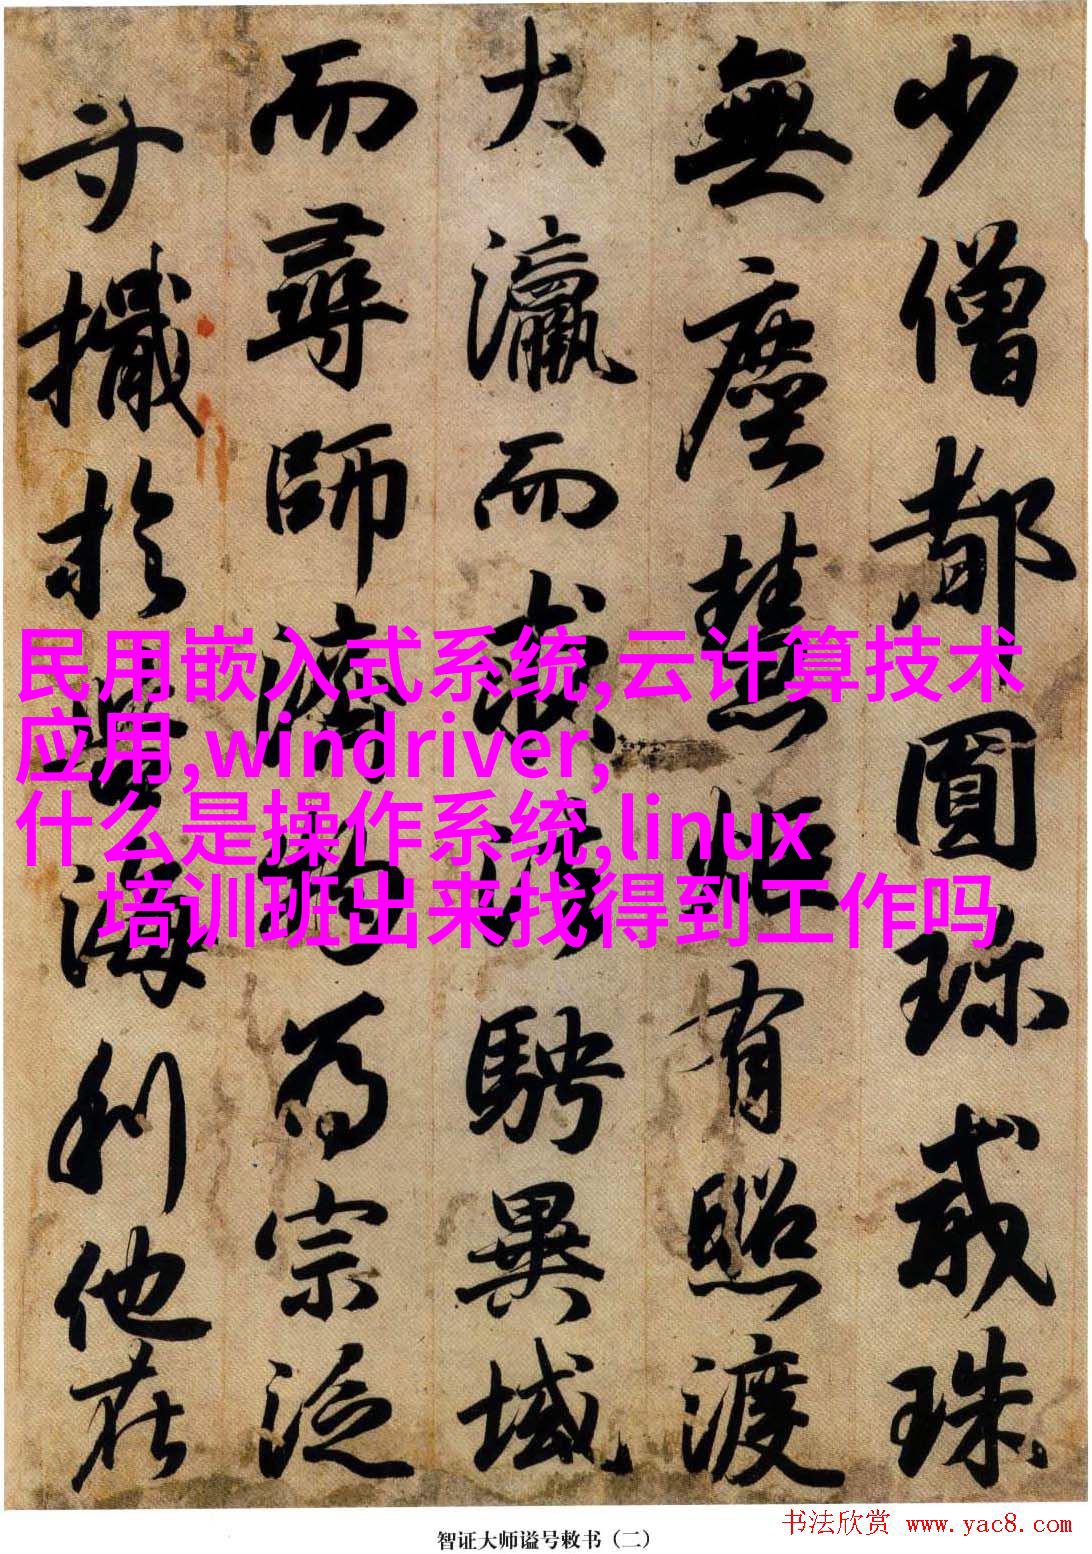 少僧都圓珎戒珠
無塵慧炬有照渡
大瀛而求法騁異域
而尋師濟物為宗泛
寸檝於巨海利他在
民用嵌入式系统,云计算技术
应用,windriver,
什么是操作系统,linux
培训班出来找得到工作吗
书法欣赏 www.yac8.com
智证大师谥号敕书（二）